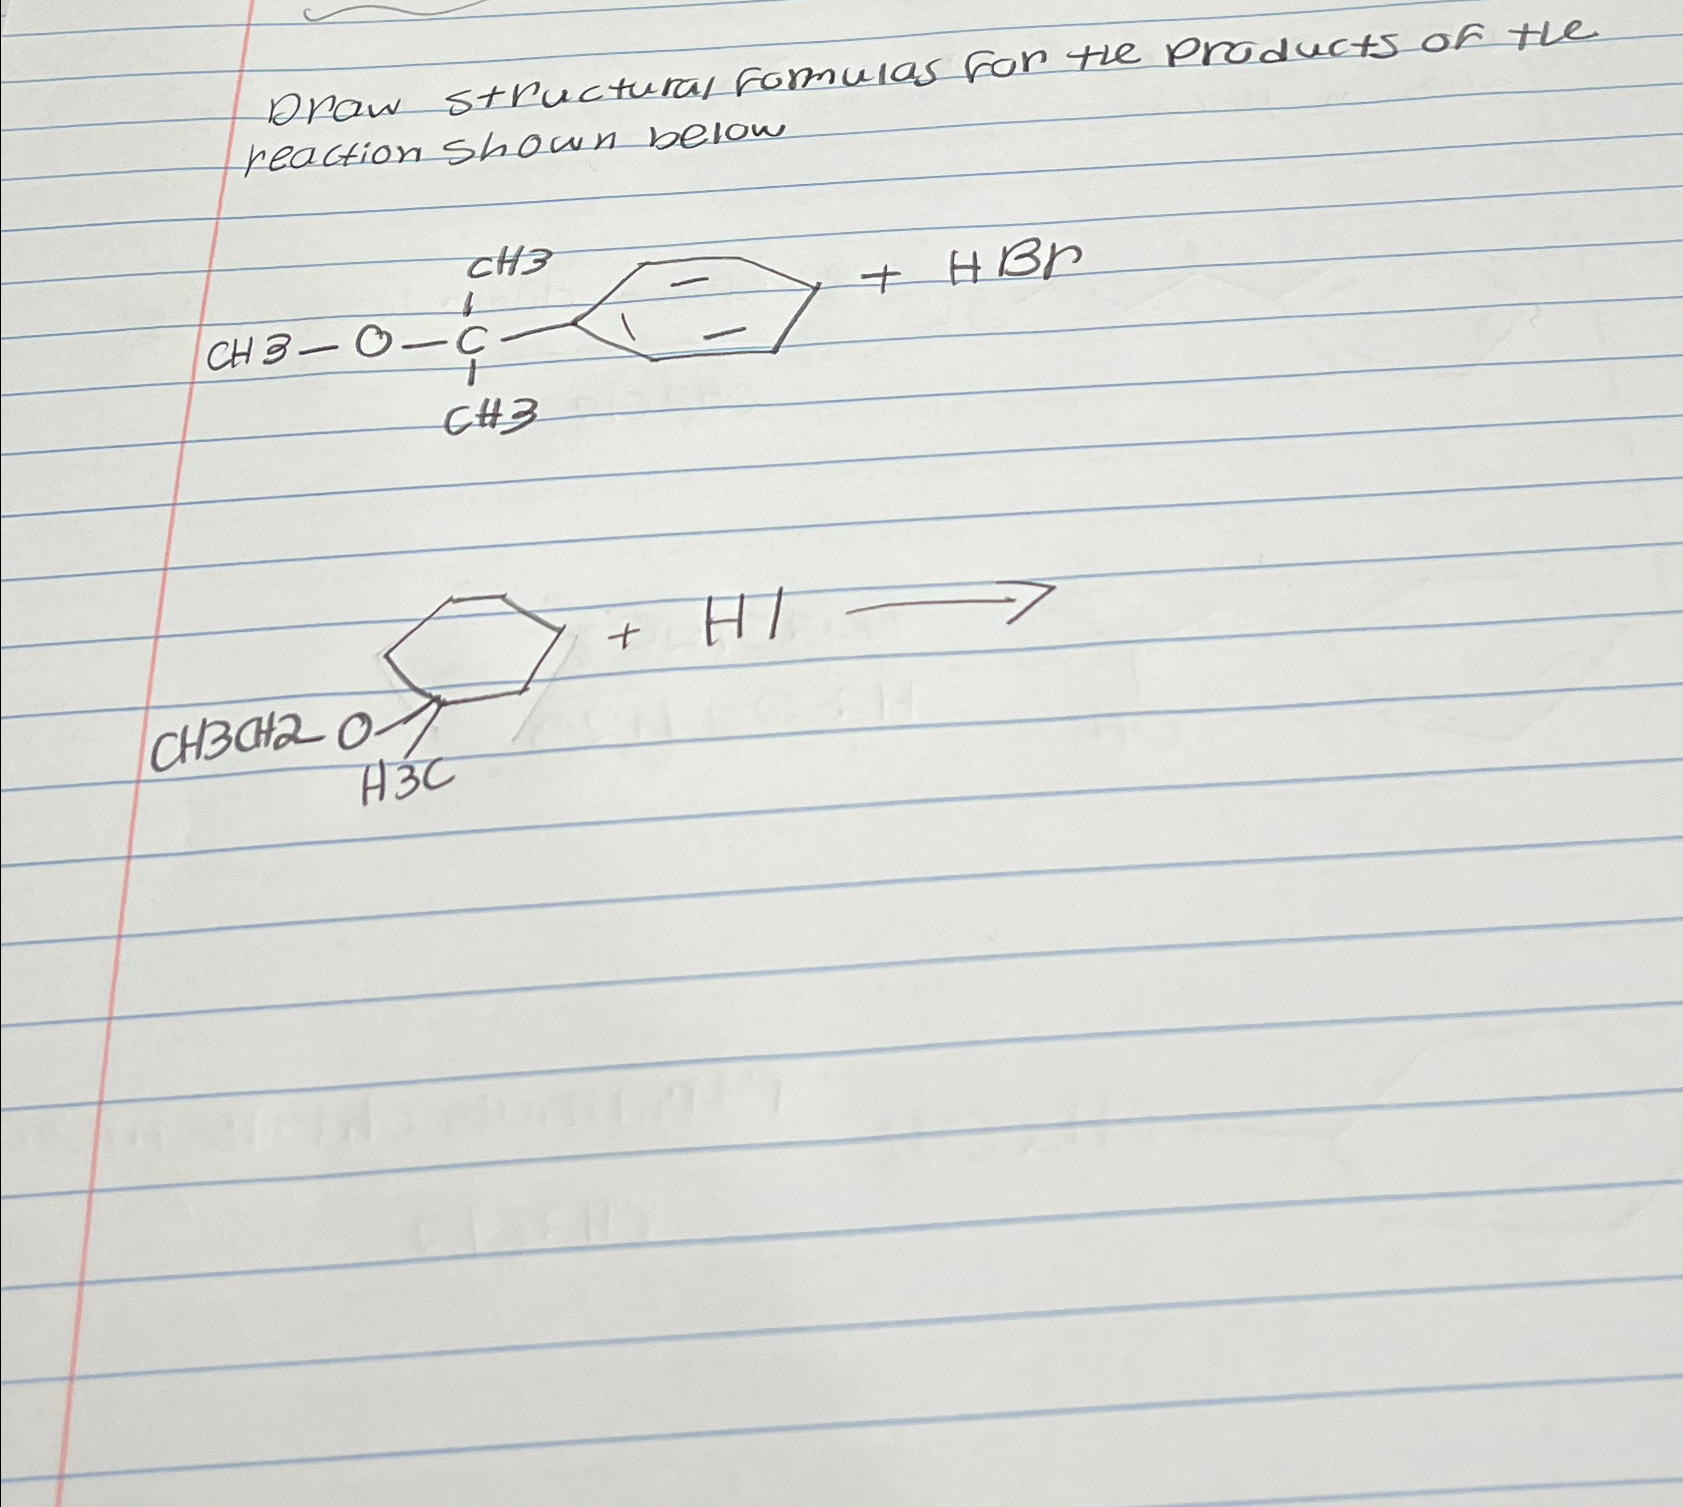 Draw structural formulas for the products of the
reaction shown below
CH3
CH3-O-C- + HBr
CH3
+ HI
CH3CH2 O
H3C